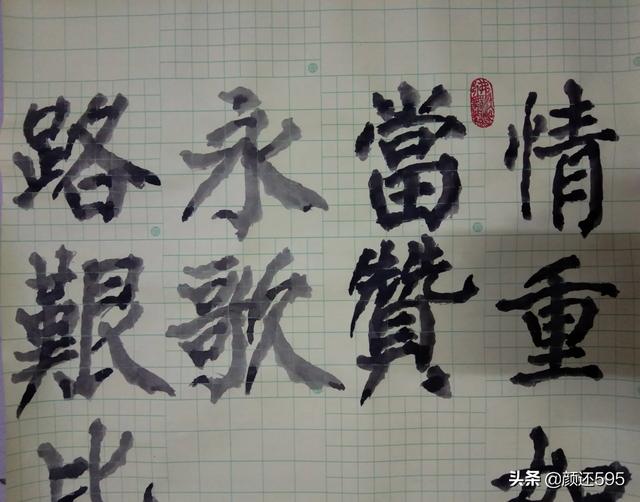 情重如
當贊
永歌
路艱
头条 @颜还595